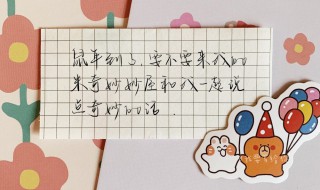 鼠年到了,要不要来我的
米奇妙妙屋和我一起说
点奇妙的话.